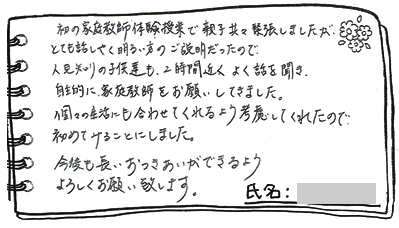 初の家庭教師体験授業で親子共々緊張しましたが、
とても話しやすく明るい方のご説明だったので、
人見知りの子供達も、2時間近くよく話を聞き、
自主的に家庭教師をお願いしてきました。
個々の生活にも合わせてくれるよう考慮してくれたので、
初めてみることにしました。
今後も長いおつきあいができるよう
よろしくお願い致します。
氏名: